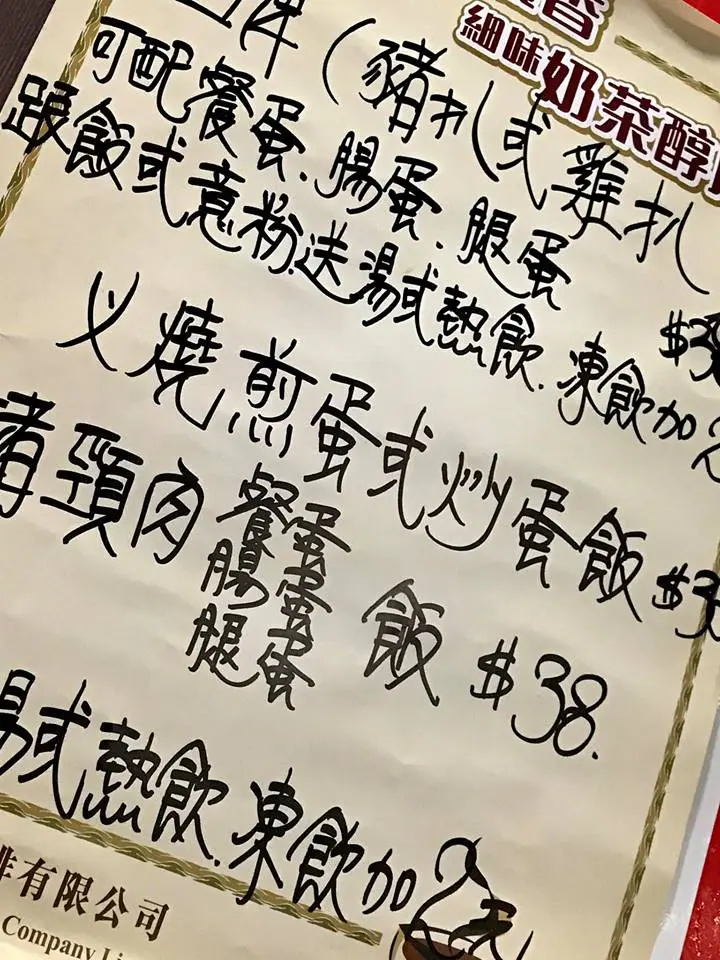 香
細味奶茶醇
(豬扒或雞扒)
可配餐蛋.腸蛋.腿蛋
跟飯或意粉.送湯或熱飲.凍飲加2
$38
叉燒煎蛋或炒蛋飯 $3
豬頸肉 餐蛋 飯 $38.
腸蛋
腿蛋
湯或熱飲.凍飲加2元
啡有限公司
Company Li